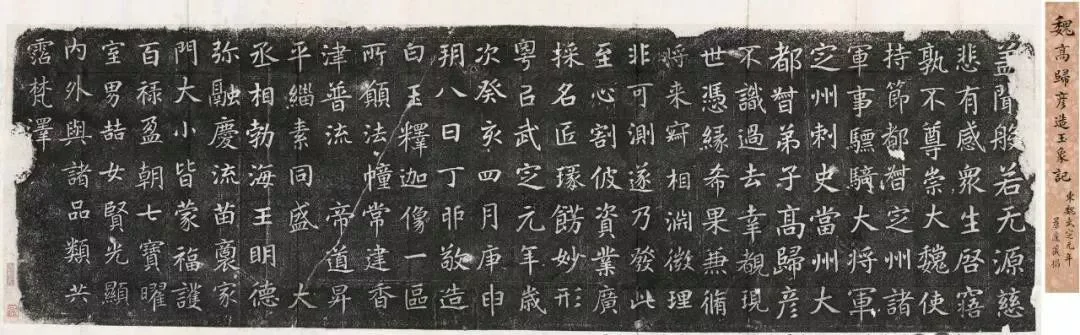 魏高歸彥造玉象記
東魏武定元年
盖聞般若无源慈
悲有感眾生啓
孰不尊崇大魏使
持節都督定州諸
軍事驃騎大將軍
定州刺史當州大
都督弟子高歸彥
不識過去幸覩現
世憑緣希果兼脩
將来寂相淵微理
非可測遂乃發此
至心割彼資業廣
採名匠琢餝妙形
粵以武定元年歲
次癸亥四月庚申
朔八日丁卯敬造
白玉釋迦像一區
所願法幢常建香
津普流帝道昇
平緇素同盛大
丞相勃海王明德
弥融慶流苗裏家
門大小皆蒙福護
百禄盈朝七寶曜
室男喆女賢光顯
内外與諸品類共
霑梵澤